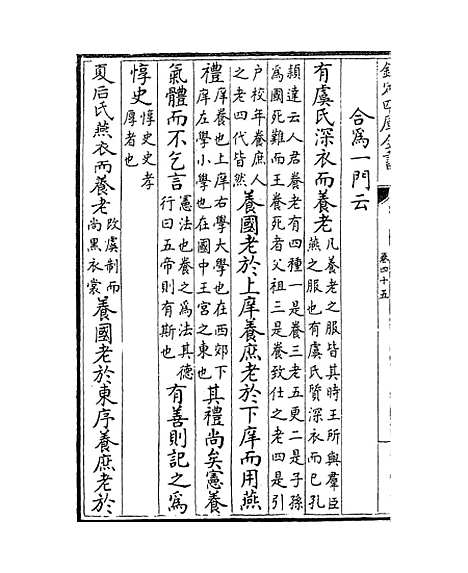 欽定四庫全書
卷四十五
合爲一門云
有虞氏深衣而養老
凡養老之服皆其時王所與羣臣
燕之服也有虞氏質深衣而已孔
頴達云人君養老有四種一是養三老五更二是子孫
爲國死難而王養死者父祖三是養致仕之老四是引
户校年養庶人
之老四代皆然
養國老於上庠養庶老於下庠而用燕
禮
庠養也上庠右學大學也在西郊下
庠左學小學也在國中王宮之東也
其禮尚矣憲養
氣體而不乞言
憲法也養之爲法其德
行曰五帝則有斯也
有善則記之爲
惇史
惇史史孝
厚者也
夏后氏燕衣而養老
改虞制而
尚黑衣裳
養國老於東序養庶老於